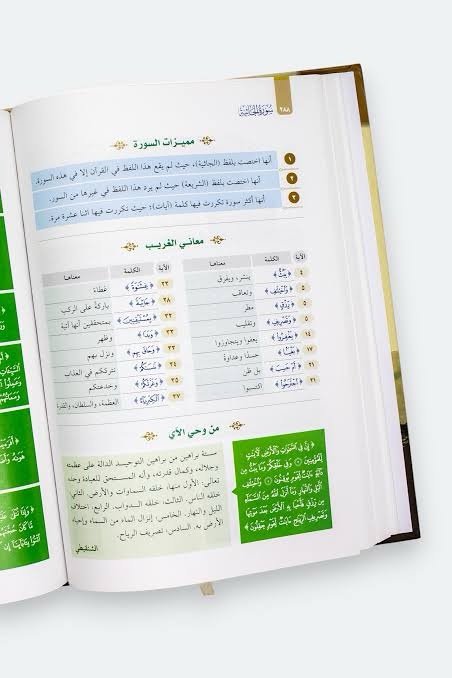 ٢٨٨
سورة الجاثية
مميزات السورة
١ أنها اختصت بلفظ (الجاثية). حيث لم يقع هذا اللفظ في القرآن إلا في هذه السورة.
٢ أنها اختصت بلفظ (الشريعة) حيث لم يرد هذا اللفظ في غيرها من السور.
٣ أنها أكثر سورة تكررت فيها كلمة (آيات)؛ حيث تكررت فيها اثنا عشرة مرة.
معاني الغريب
الآية الكلمة معناها
٤ ﴿يَبُثُّ﴾ ينشر، ويفرق
٥ ﴿وَاخْتِلَافِ﴾ وتعاقب
٥ ﴿رِزْقٍ﴾ مطر
٥ ﴿وَتَصْرِيفِ﴾ وتقليب
١٤ ﴿يَغْفِرُوا﴾ يعفوا ويتجاوزوا
١٧ ﴿بَغْيًا﴾ حسدًا وعداوةً
٢١ ﴿أَمْ حَسِبَ﴾ بل ظن
٢١ ﴿اجْتَرَحُوا﴾ اكتسبوا
الآية الكلمة معناها
٢٣ ﴿غِشَاوَةً﴾ غطاء
٢٨ ﴿جَاثِيَةً﴾ باركةً على الركب
٣٢ ﴿بِمُسْتَيْقِنِينَ﴾ بمتحققين أنها آتية
٣٣ ﴿وَبَدَا﴾ وظهر
٣٣ ﴿وَحَاقَ بِهِم﴾ ونزل بهم
٣٤ ﴿نَنسَاكُمْ﴾ نترككم في العذاب
٣٥ ﴿وَغَرَّتْكُمُ﴾ وخدعتكم
٣٧ ﴿الْكِبْرِيَاءُ﴾ العظمة، والسلطان، والقدرة
من وحي الآي
﴿إِنَّ فِي السَّمَاوَاتِ وَالْأَرْضِ لَآيَاتٍ
لِّلْمُؤْمِنِينَ ۝ وَفِي خَلْقِكُمْ وَمَا يَبُثُّ مِن
دَابَّةٍ آيَاتٌ لِّقَوْمٍ يُوقِنُونَ ۝ وَاخْتِلَافِ
اللَّيْلِ وَالنَّهَارِ وَمَا أَنزَلَ اللَّهُ مِنَ السَّمَاءِ
مِن رِّزْقٍ فَأَحْيَا بِهِ الْأَرْضَ بَعْدَ مَوْتِهَا
وَتَصْرِيفِ الرِّيَاحِ آيَاتٌ لِّقَوْمٍ يَعْقِلُونَ﴾
ستة براهين من براهين التوحيد الدالة على عظمته
وجلاله، وكمال قدرته، وأنه المستحق للعبادة وحده
تعالى: الأول منها، خلقه السماوات والأرض. الثاني،
خلقه الناس. الثالث، خلقه الدواب. الرابع، اختلاف
الليل والنهار. الخامس، إنزال الماء من السماء وإحياء
الأرض به. السادس، تصريف الرياح.
الشنقيطي